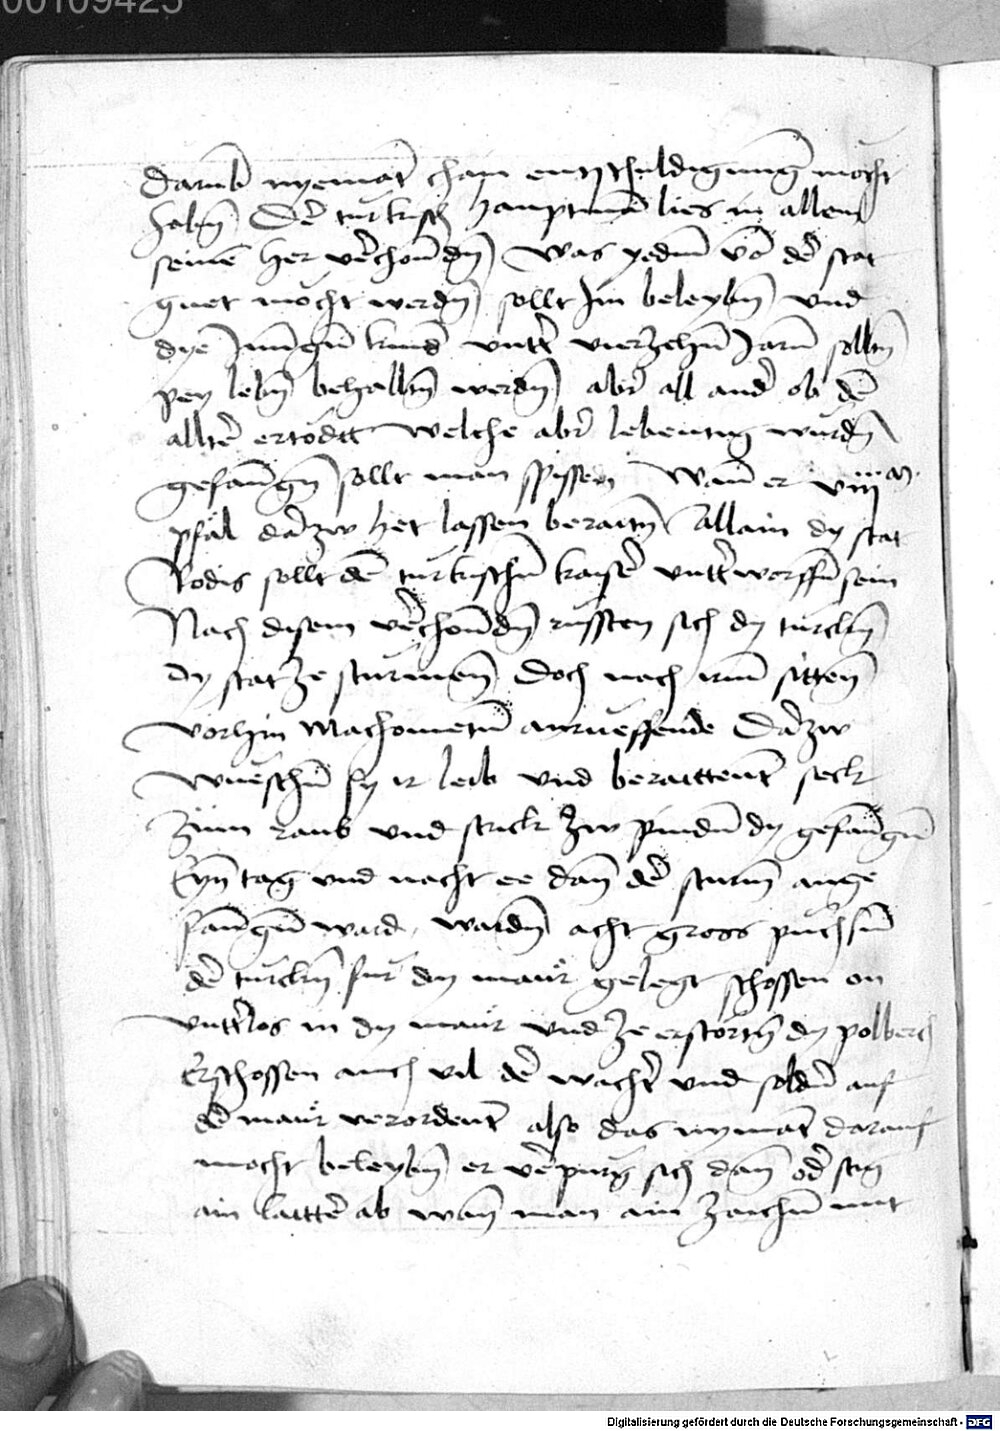 00109425
Darumb nyemant chain entschuldigung mocht
habn Der turkisch hauptman lies in allem
seinem her verchondn was yedem von der stat
guet mocht werdn sollt Im beleybn und
dye Jungen kind untter vierzehen Jarn solltn
pey lebn behalltn werdn aber all ander ob dem
allter ertodtt welche aber lebentig wurdn
gefangn sollt man spissen Wann er viij m
pfäl dar zw het lassen beraittn Allain dy stat
Rodis sollt dem turkischen kayser untterworffen sein
Nach disem verchondn russten sich dy turckn
dy stat ze sturmen Doch nach irem sitten
vorhin Machometum anrueffende Dar zw
wueschen sy ir leib und beraittent seck
Zum raub und strick zw pinden dy gefangen
Eyn tag und nacht ee dan der sturm ange
fangen ward, wardn acht gross puchsen
der turckn fur dy maur gelegt schossen on
untterlos in dy maur und ze erstortn dy polberch
Erschossen auch vil der wachter und soldner auf
der maur verordent also das nymant darauf
mocht beleybn er verpurg sich dann oder stig
ain laitter ab wann man ain zaichen mit
Digitalisierung gefördert durch die Deutsche Forschungsgemeinschaft - DFG